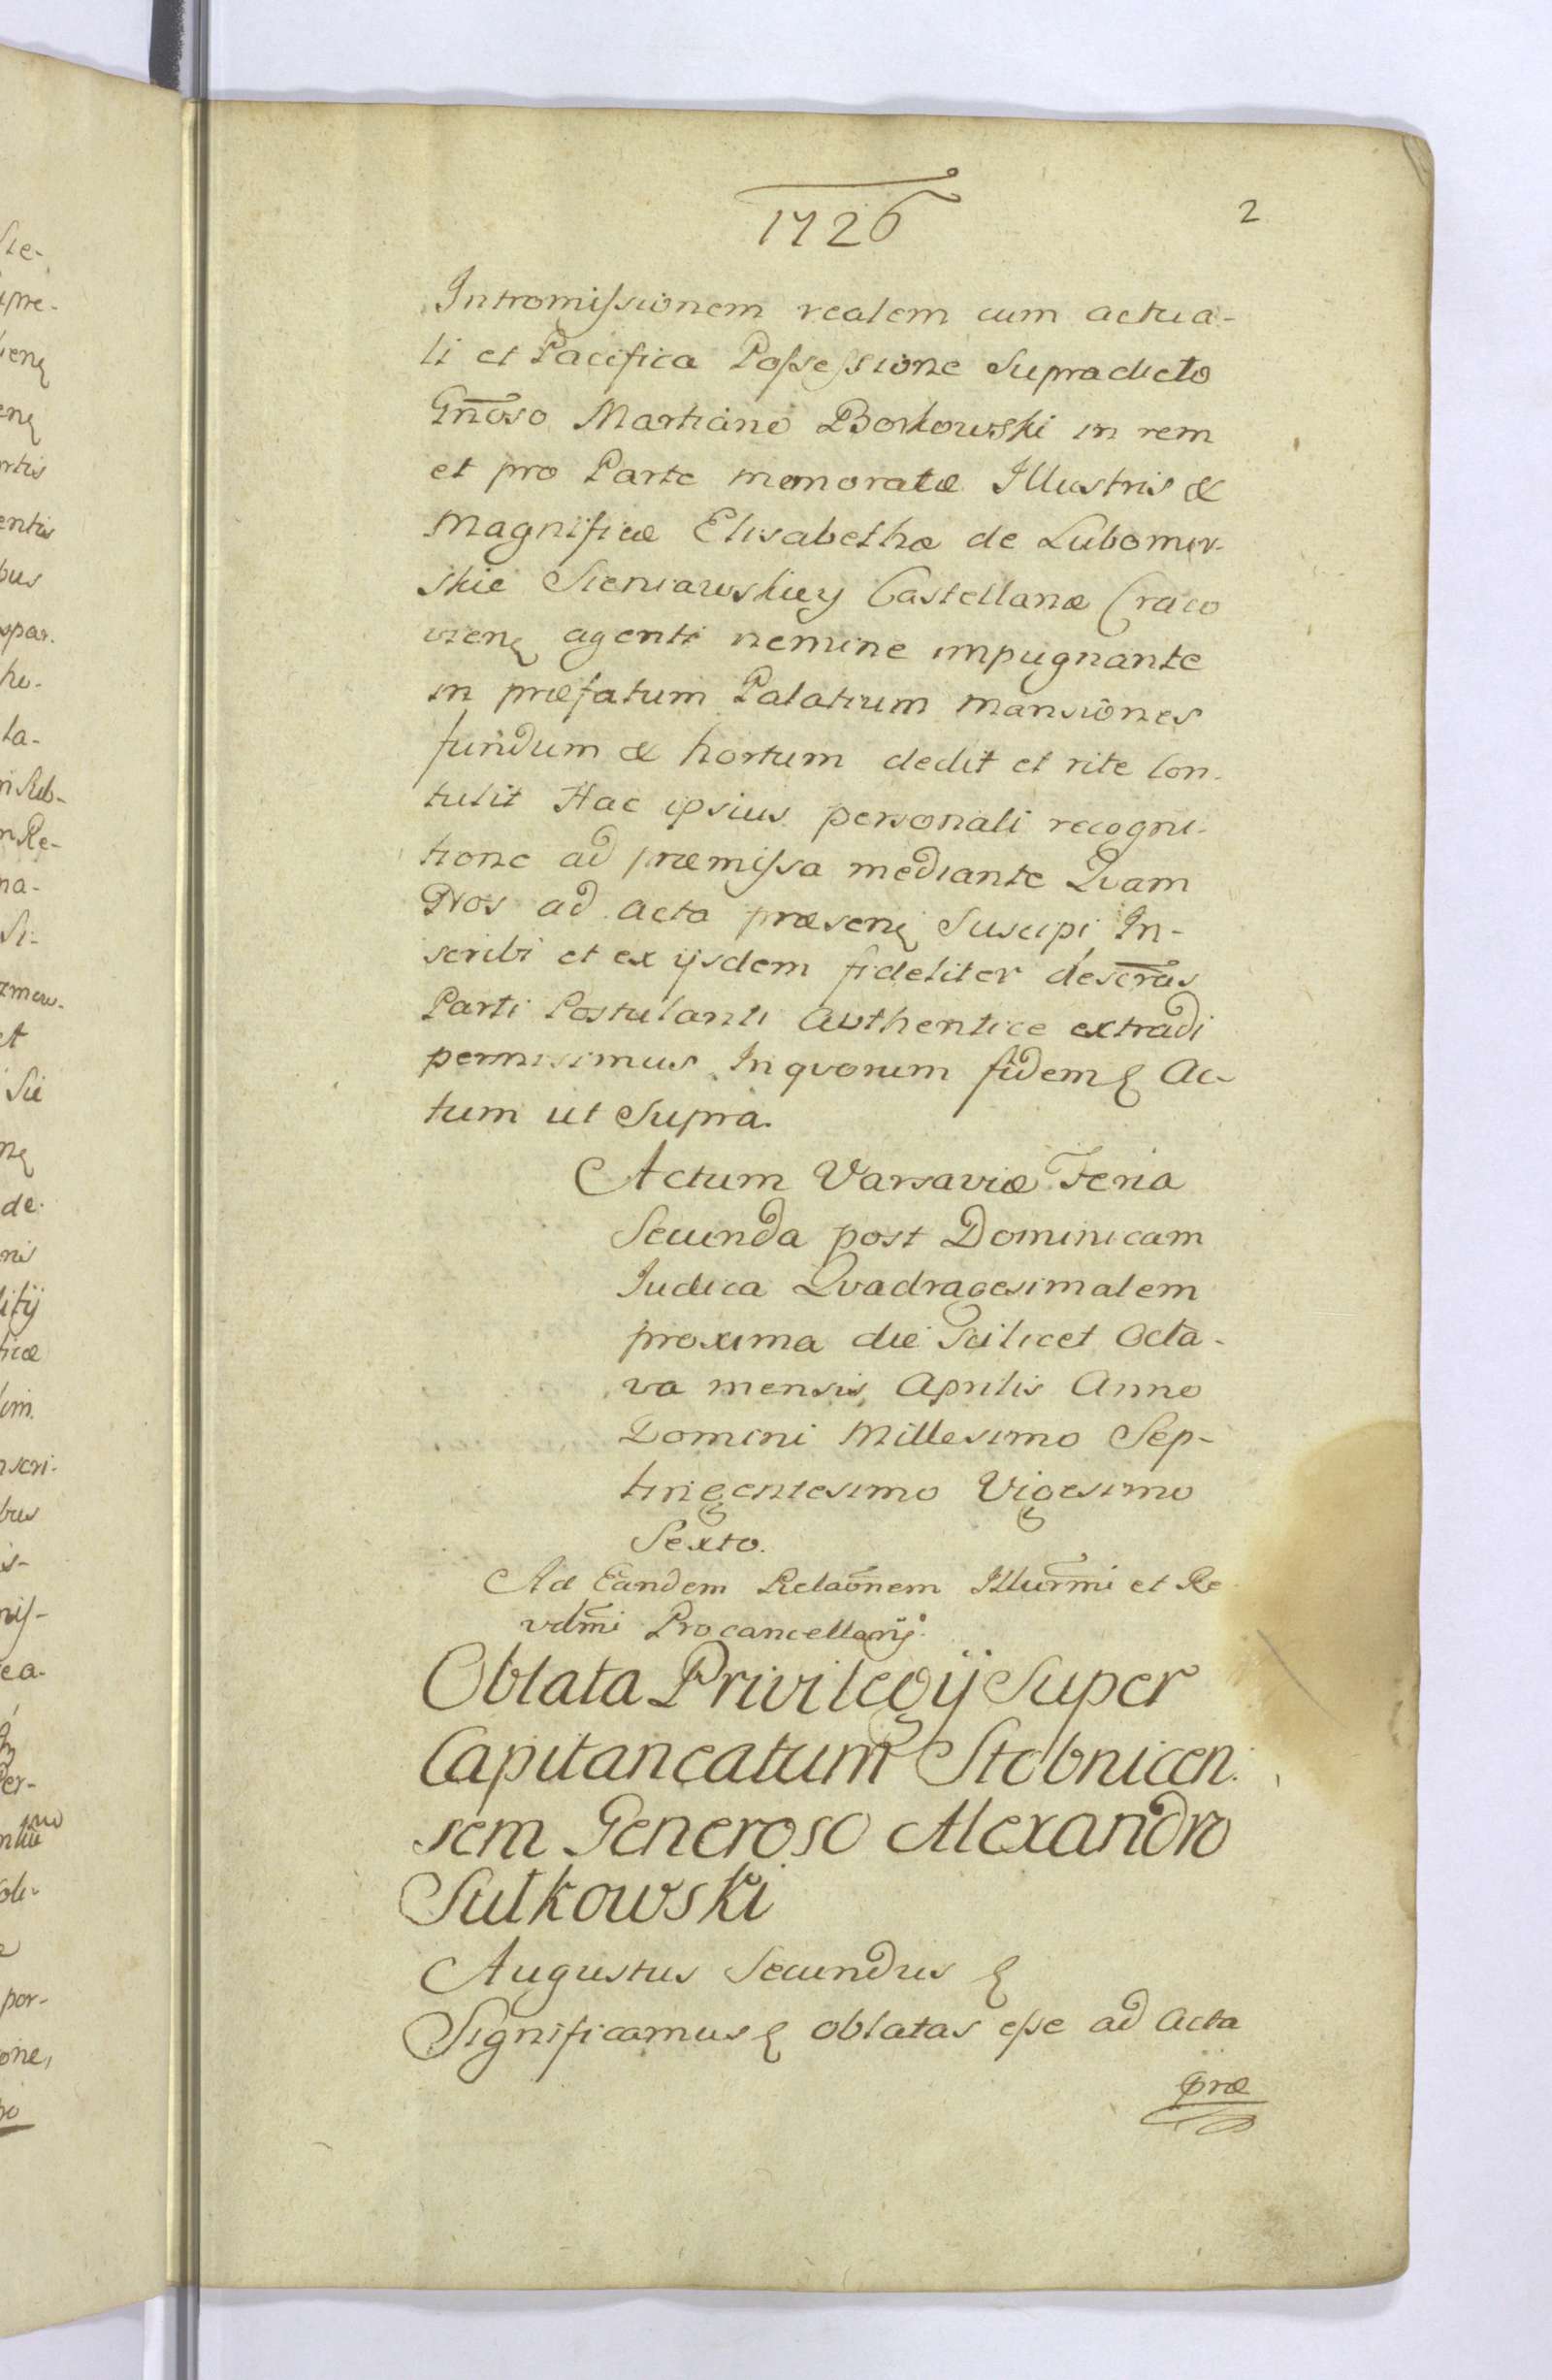 1726
2
Intromissionem realem cum actua-
li et Pacifica Possessione Supradicto
Gnoso Martiano Borkowski in rem
et pro Parte memoratæ Illustris &
Magnificæ Elisabethæ de Lubomir-
skie Sieniawskiey Castellanæ Craco
vien agenti nemine impugnante
in præfatum Palatium mansiones
fundum & hortum dedit et rite Con-
tulit Hac ipsius personali recogni-
tione ad præmissa mediante Quam
Nos ad acta præsen Suscipi In-
scribi et ex ijsdem fideliter descras
Parti Postulanti Authentice extradi
permisimus In quorum fidem Ac-
tum ut Supra.
Actum Varsaviæ Feria
Secunda post Dominicam
Iudica Quadragesimalem
proxima die Scilicet Octa-
va mensis Aprilis Anno
Domini Millesimo Sep-
tingentesimo Vigesimo
Sexto.
Ad Eandem Relaonem Illurmi et Re
vdmi Procancellarij.
Oblata Privilegij Super
Capitaneatum Stobnicen-
sem Generoso Alexandro
Sułkowski
Augustus Secundus
Significamus oblatas esse ad Acta
præ